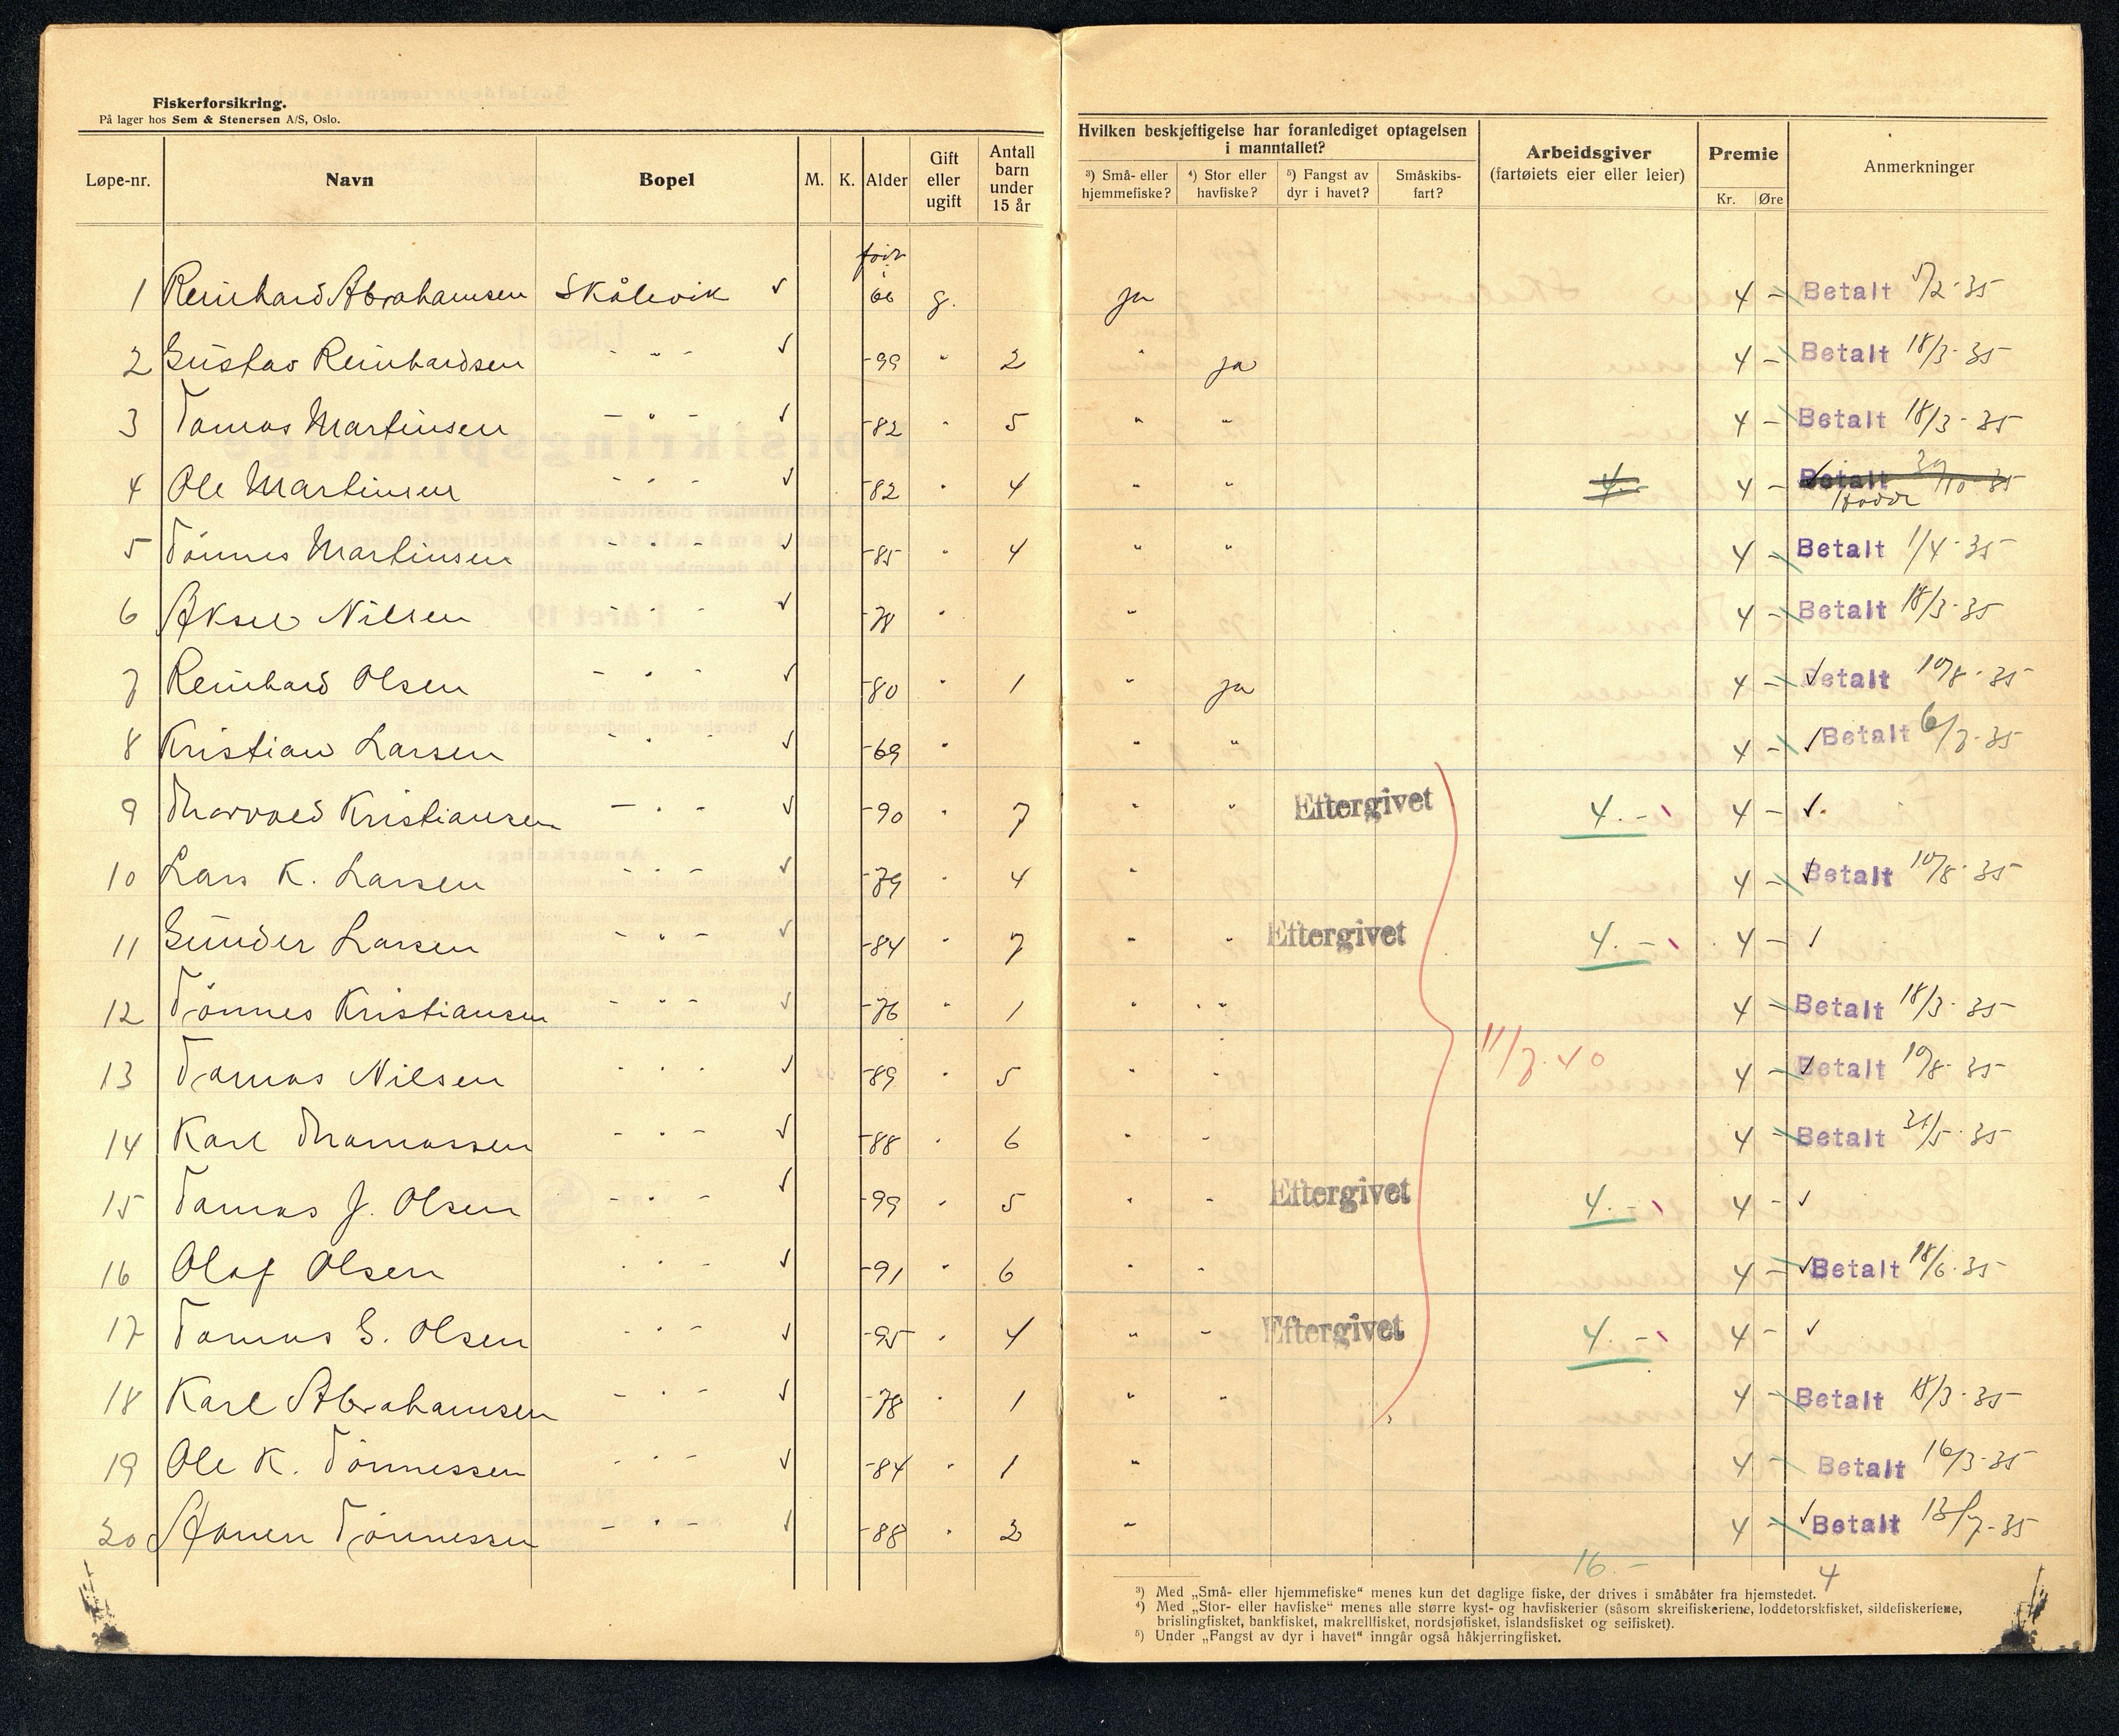 Fiskerforsikring.
På lager hos Sem & Stenersen A/S, Oslo.
Løpe-nr. Navn Bopel M. K. Alder Gift eller ugift Antall barn under 15 år
Hvilken beskjeftigelse har foranlediget optagelsen i manntallet?
³) Små- eller hjemmefiske? ⁴) Stor eller havfiske? ⁵) Fangst av dyr i havet? Småskibsfart?
Arbeidsgiver (fartøiets eier eller leier) Premie Kr. Øre Anmerkninger
født i
1 Reinhard Abrahamsen Skålevik ✓ 66 g. ja 4 - Betalt 5/2-35
2 Gustav Reinhardsen - " - ✓ -99 " 2 " ja 4 - Betalt 18/3-35
3 Tomas Martinsen - " - ✓ -82 " 5 " " 4 - Betalt 18/3-35
4 Ole Martinsen - " - ✓ -82 " 4 " " 4.- 4 - Betalt /10-35
5 Tönnes Martinsen - " - ✓ -85 " 4 " " 4 - Betalt 1/4-35
6 Aksel Nilsen - " - ✓ -78 " " 4 - Betalt 18/3-35
7 Reinhard Olsen - " - ✓ -80 " 1 " ja 4 - ✓ Betalt 10/8-35
8 Kristian Larsen - " - ✓ -69 " " " 4 - ✓ Betalt 6/7-35
9 Thorvald Kristiansen - " - ✓ -90 " 7 " " Eftergivet 4.- 4 - ✓
10 Lars K. Larsen - " - ✓ -79 " 4 " 4 - ✓ Betalt 10/8-35
11 Gunder Larsen - " - ✓ -84 " 7 " " Eftergivet 4.- 4 - ✓
12 Tönnes Kristiansen - " - ✓ -76 " 1 " " 4 - Betalt 18/3-35
13 Tomas Nilsen - " - ✓ -89 " 5 " " 11/7.40 4 - ✓ Betalt 10/8-35
14 Karl Thomassen - " - ✓ -88 " 6 " " 4 - Betalt 31/5-35
15 Tomas J. Olsen - " - ✓ -99 " 5 " " Eftergivet 4.- 4 - ✓
16 Olaf Olsen - " - ✓ -91 " 6 " " 4 - ✓ Betalt 18/6-35
17 Tomas G. Olsen - " - ✓ -95 " 4 " " Eftergivet 4.- 4 - ✓
18 Karl Abrahamsen - " - ✓ -78 " 1 " " 4 - Betalt 18/3-35
19 Ole K. Tönnessen - " - ✓ -84 " 1 " 4 - Betalt 16/3-35
20 Tönnessen - " - ✓ -88 " 2 " 4 - ✓ Betalt 13/7-35
16 - 4
³) Med „Små- eller hjemmefiske“ menes kun det daglige fiske, der drives i småbåter fra hjemstedet.
⁴) Med „Stor- eller havfiske“ menes alle større kyst- og havfiskerier (såsom skreifiskeriene, loddetorskfisket, sildefiskeriene,
brislingfisket, bankfisket, makrellfisket, nordsjøfisket, islandsfisket og seifisket).
⁵) Under „Fangst av dyr i havet“ inngår også håkjerringfisket.